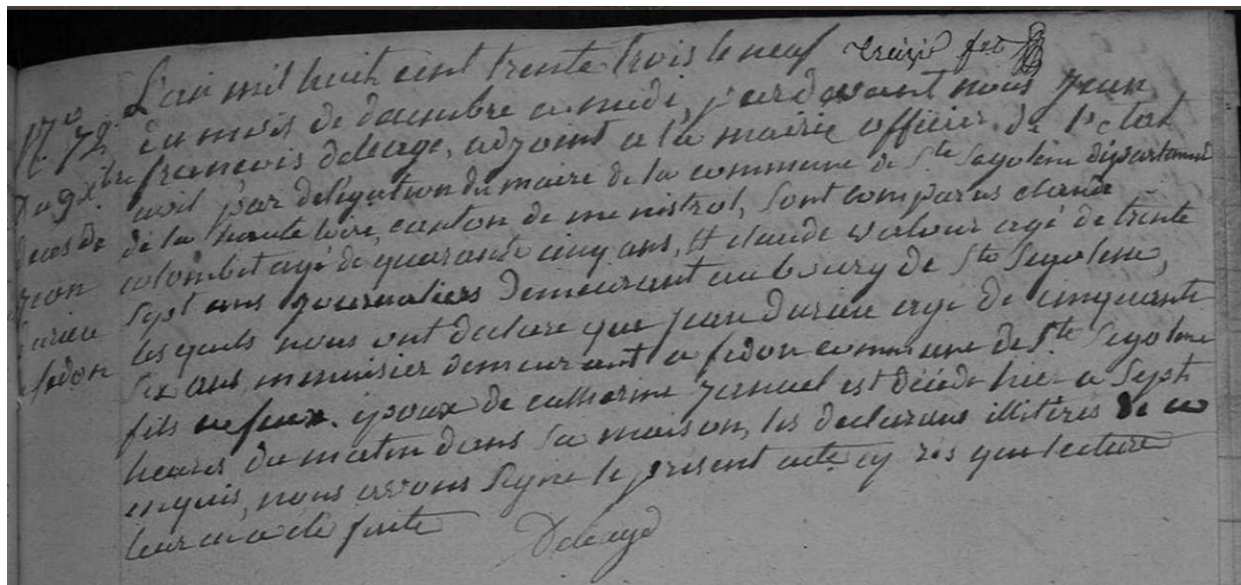 L'an mil huit cent trente trois le neuf
du mois de decembre a midi, par devant nous jean
françois deleage, adjoint a la mairie officier de l'etat
civil par delegation du maire de la commune de Ste Segolene departement
de la haute loire, canton de monistrol, sont comparus claude
colombet agé de quarante cinq ans, et claude verlour agé de trente
sept ans journaliers demeurant au bourg de Ste Segolene,
lesquels nous ont declaré que jean durieu agé de cinquante
six ans, menuisier demeurant a fedon commune de Ste Segolene
fils epoux de catherine januel est décédé hier a sept
heures du matin dans sa maison, les declarans illitérés de ce
enquis, nous avons signé le present acte après que lecture
leur en a été faite
Deleage
No 72
Du 9 Xbre
deces de
jean
durieu
fedon